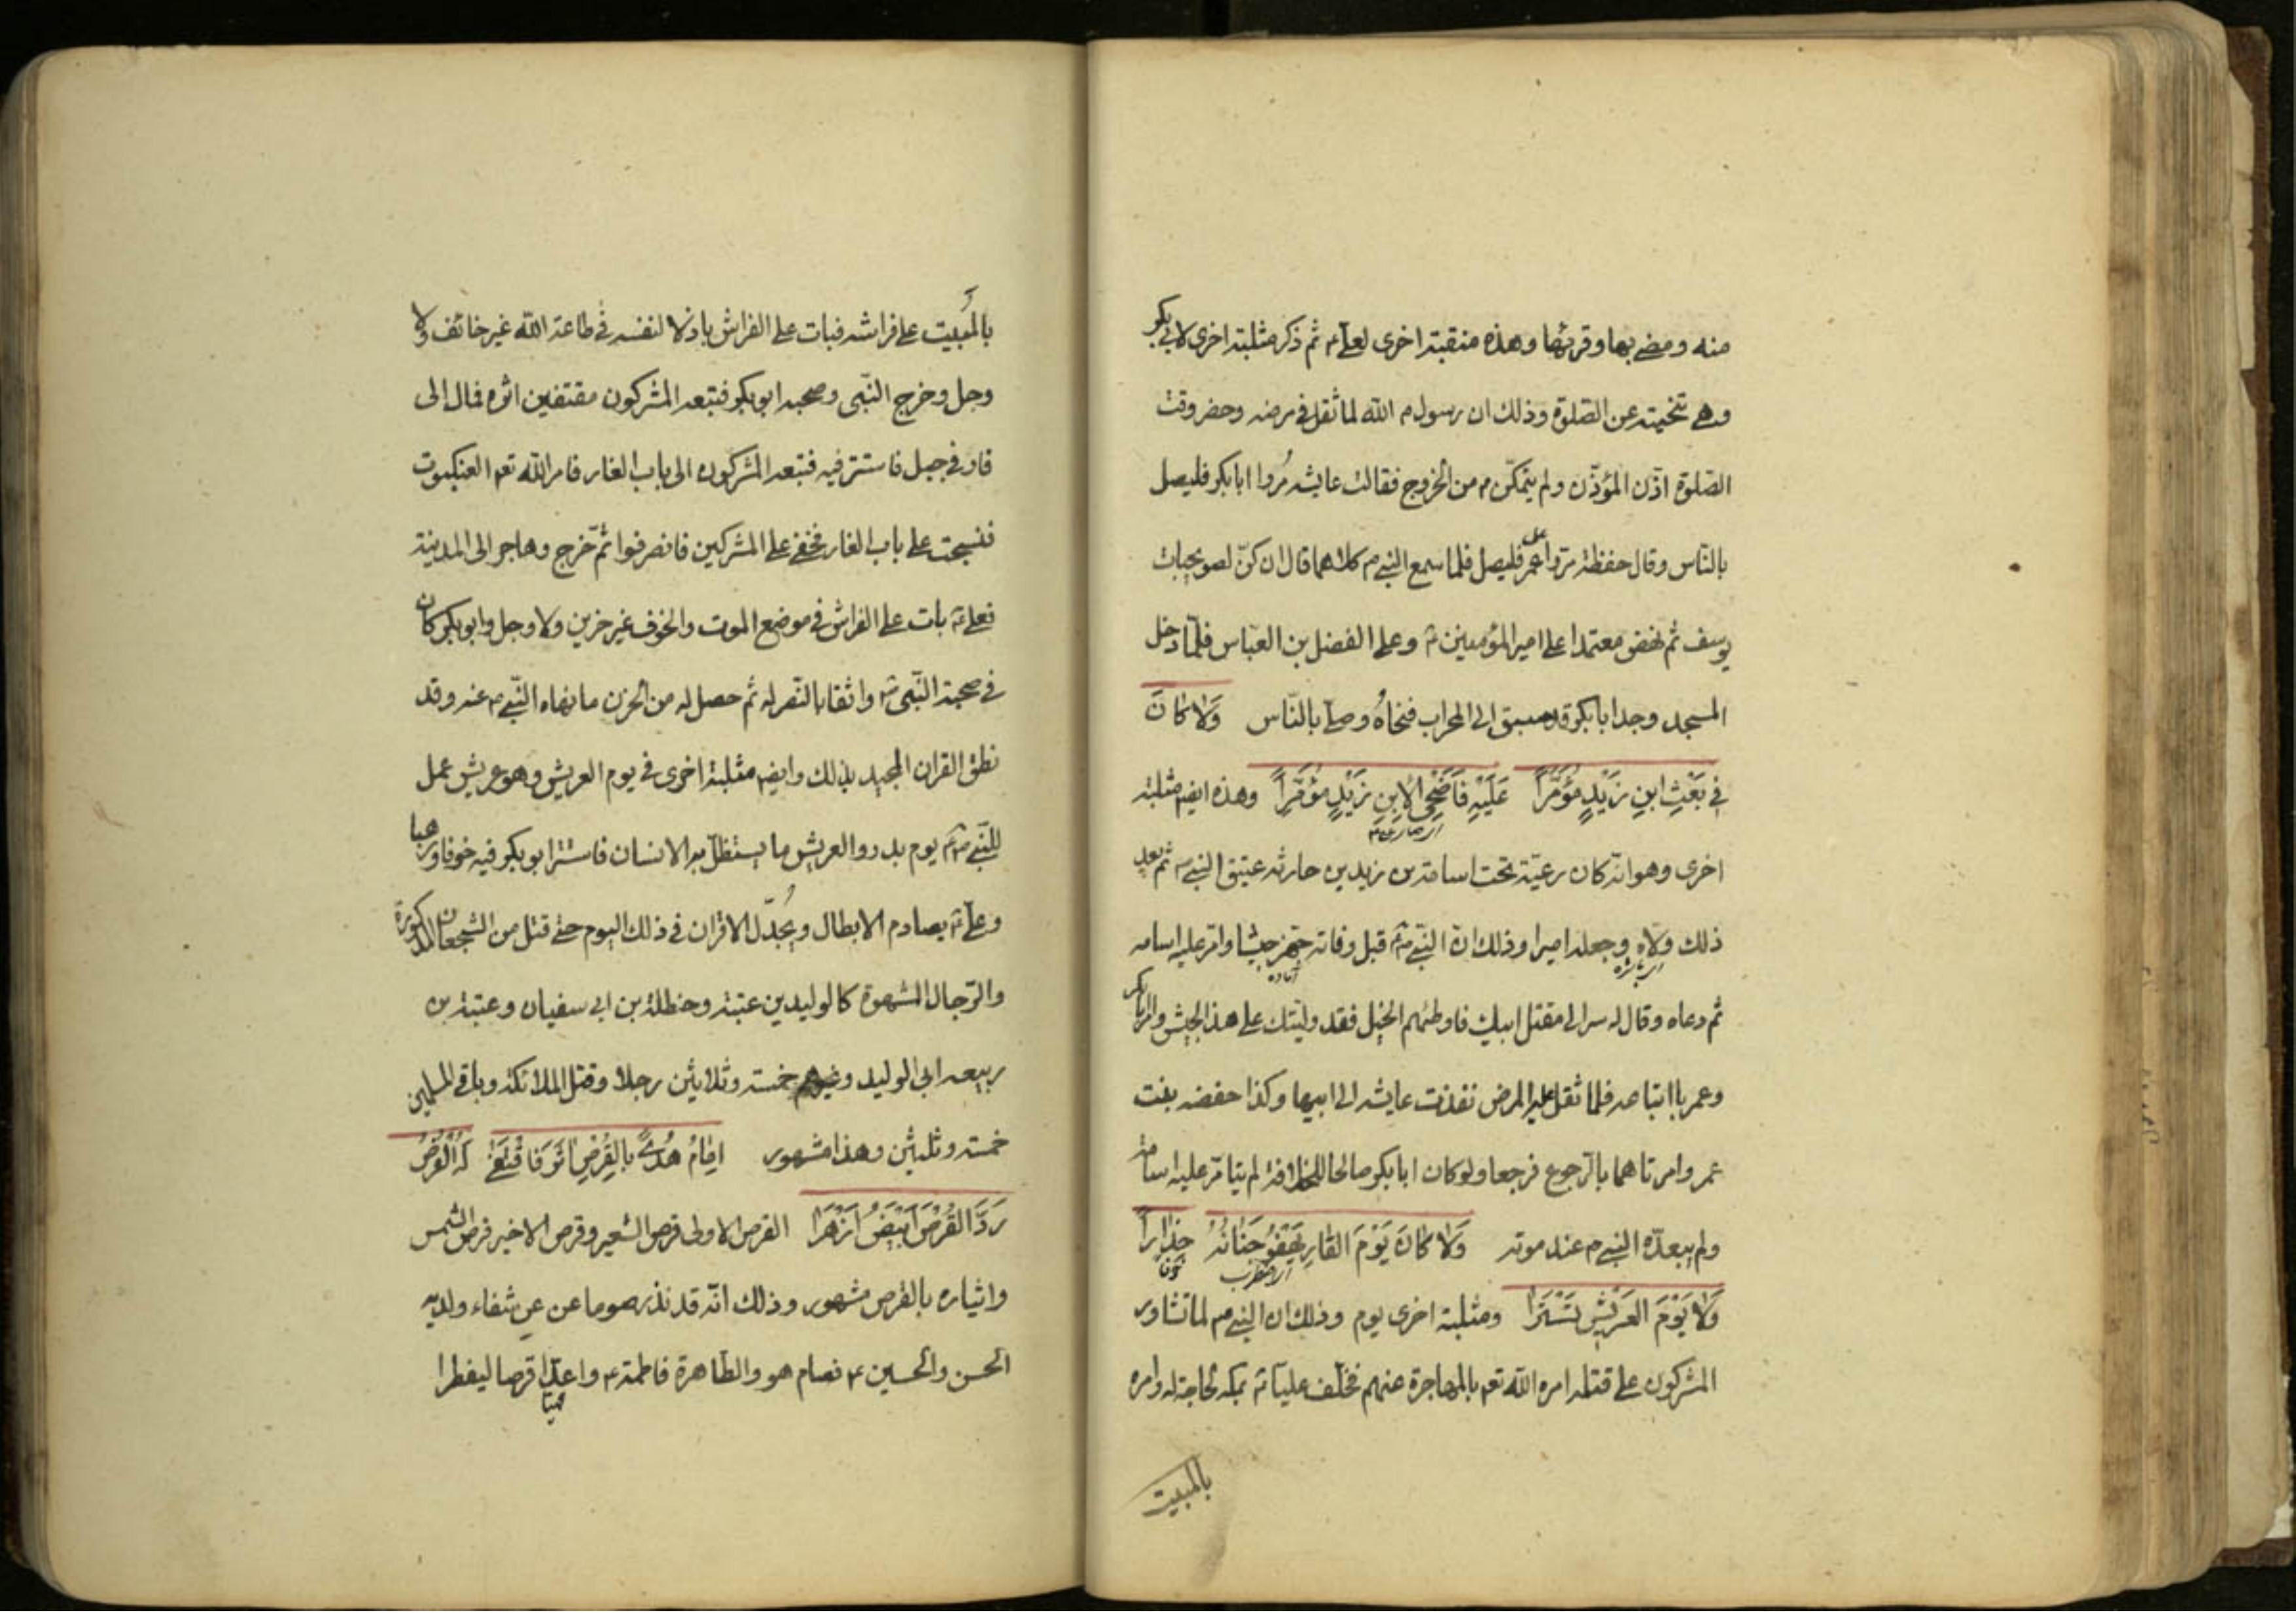 منه ومضى بها وقرئها وهذه منقبة اخرى لعلى ع ثم ذكر مثلبة اخرى لابي بكر
وهى تنحيته عن الصلوة وذلك ان رسول م الله لما ثقل فى مرضه وحضر وقت
الصّلوة اذّن المؤذّن ولم يتمكّن م من الخروج فقالت عايشه مُروا ابابكر فليصل
بالنّاس وقال حفظة مروا عمر فليصل فلما سمع النبى م كلاهما قال ان كنّ لصويحبات
يوسف ثم نهض معتمدا على امير المؤمنين ع وعلى الفضل بن العبّاس فلمّا دخل
المسجد وجد ابابكر قد سبق الى المحراب فنحاهُ وصلّى بالنّاس وَلا كانَ
فى بَعْثِ ابنِ زَيْدٍ مؤمَّراً عَلَيْهِ فَاَضْحى لِابنِ زَيْدٍ مؤمَّراً وهذه ايض مثلبة
اى صار
اخرى وهو انّه كان رعيّة تحت اسامة بن زيد بن حارثه عتيق النبى م ثم بعد
ذلك ولّاه وجعله اميرا وذلك انّ النّبى م قبل وفاته جهّز جيشا وامّر عليه اسامه
آماده
ثم دعاه وقال له سر الى مقتل ابيك فاوطئهم الخيل فقد وليّتك على هذ الجيش وامر ابابكر
وعمر باتباعه فلما ثقل عليه المرض نفذت عايشه الى ابيها وكذا حفصه بنت
عمر وامرتاهما بالرّجوع فرجعا ولو كان ابابكر صالحا للخلافة لم يتامّر عليه اسامة
ولم يبعدّه النبى م عند موته وَلا كانَ يَوْمَ الغارِ يَهْفُو جَنانُهُ حِذاراً
اى اضطرب خوفا
وَلا يَوْمَ العَريْشِ تَسَتَّرا ومثلبة اخرى يوم وذلك ان النبى م لما تشاور
المشركون على قتله امره الله تع بالمهاجرة عنهم فخلّف عليّا ع بمكه لحاجة له وامره
بالمبيت
بالمَبيت على فراشه فبات على الفراش باذلا لنفسه فى طاعة الله غير خائف ولا
وجل وخرج النّبى وصحبه ابوبكر فتبعه المشركون مقتفين اثره فمال الى
غار فى جبل فاستتر فيه فتبعه المشركون الى باب الغار فامر الله تع العنكبوت
فنسجت على باب الغار فخفى على المشركين فانصرفوا ثمّ خرج وهاجر الى المدينة
فعلى ع بات على الفراش فى موضع الموت والخوف غير حزين ولا وجل وابوبكر كان
فى صحبة النّبى م واثقا بالنّصر له ثم حصل له من الحزن ما نهاه النّبى م عنه وقد
نطق القران المجيد بذلك وايض مثلبة اخرى فى يوم العريش وهو عريش عمل
للنّبى م يوم بدر والعريش ما يستظلّ به الانسان فاستتر ابوبكر فيه خوفا ورهبا
وعلى ع يصادم الابطال ويُجدّل الاقران فى ذلك اليوم حتى قتل من الشجعان المذكورة
والرّجال المشهورة كالوليد بن عتبة وحنظلة بن ابى سفيان وعتبة بن
ربيعه ابى الوليد وغيرهم خمسة وثلاثين رجلا وقتل الملائكة وباقى المسلمين
خمسة وثلثين وهذا مشهور اِمامُ هُدىً بِالقُرْصِ اٰثَرَ فَاقْتَضٰى لَهُ القُرْصُ
رَدَّ القُرْصَ اَبْيَضَ اَزْهَرَا القرص الاولى قرص الشعير وقرص الاخير قرص الشمس
وايثاره بالقرص مشهور وذلك انّه قد نذر صوما عن عن شفاء ولديه
الحسن والحسين ع فصام هو والطّاهرة فاطمة ع واعدّا قرصا ليفطرا